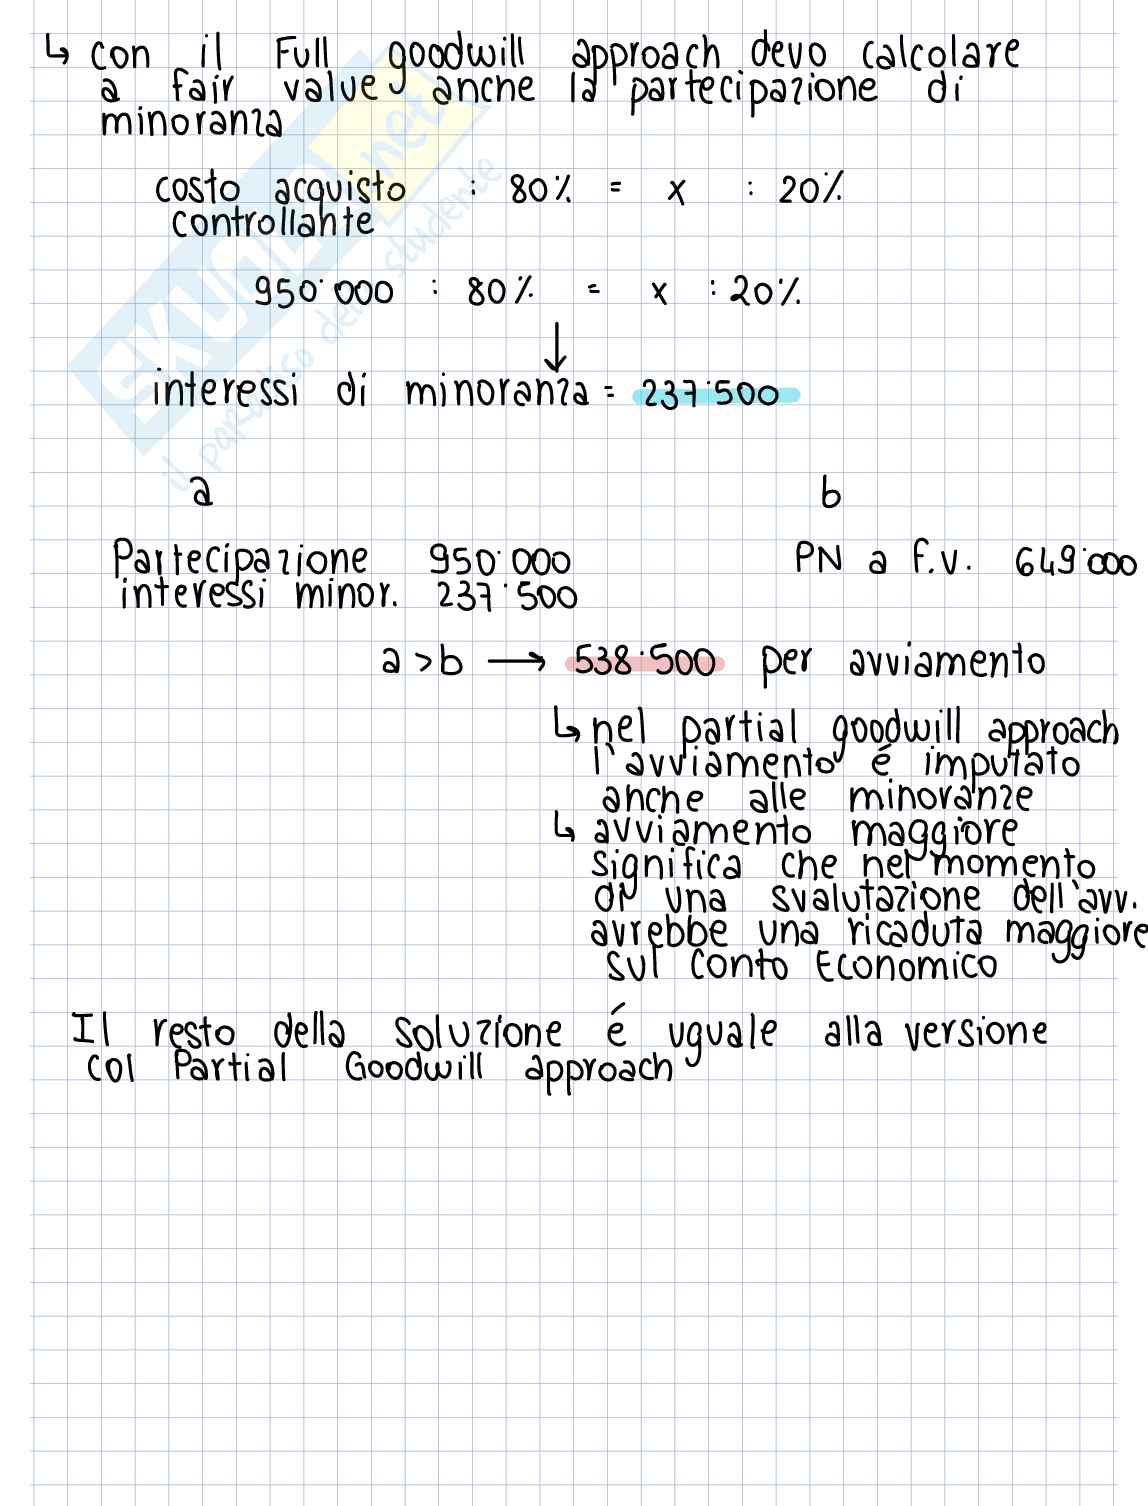 ↳ con il Full goodwill approach devo calcolare
a fair value anche la partecipazione di
minoranza
costo acquisto : 80% = x : 20%
controllante
950˙000 : 80% = x : 20%
↓
interessi di minoranza = 237˙500
a b
Partecipazione 950˙000 PN a f.v. 649˙000
interessi minor. 237˙500
a > b → 538˙500 per avviamento
↳ nel partial goodwill approach
l'avviamento é imputato
anche alle minoranze
↳ avviamento maggiore
significa che nel momento
di una svalutazione dell'avv.
avrebbe una ricaduta maggiore
sul Conto Economico
Il resto della soluzione é uguale alla versione
col Partial Goodwill approach
SKUOLA.net
il paradiso dello studente